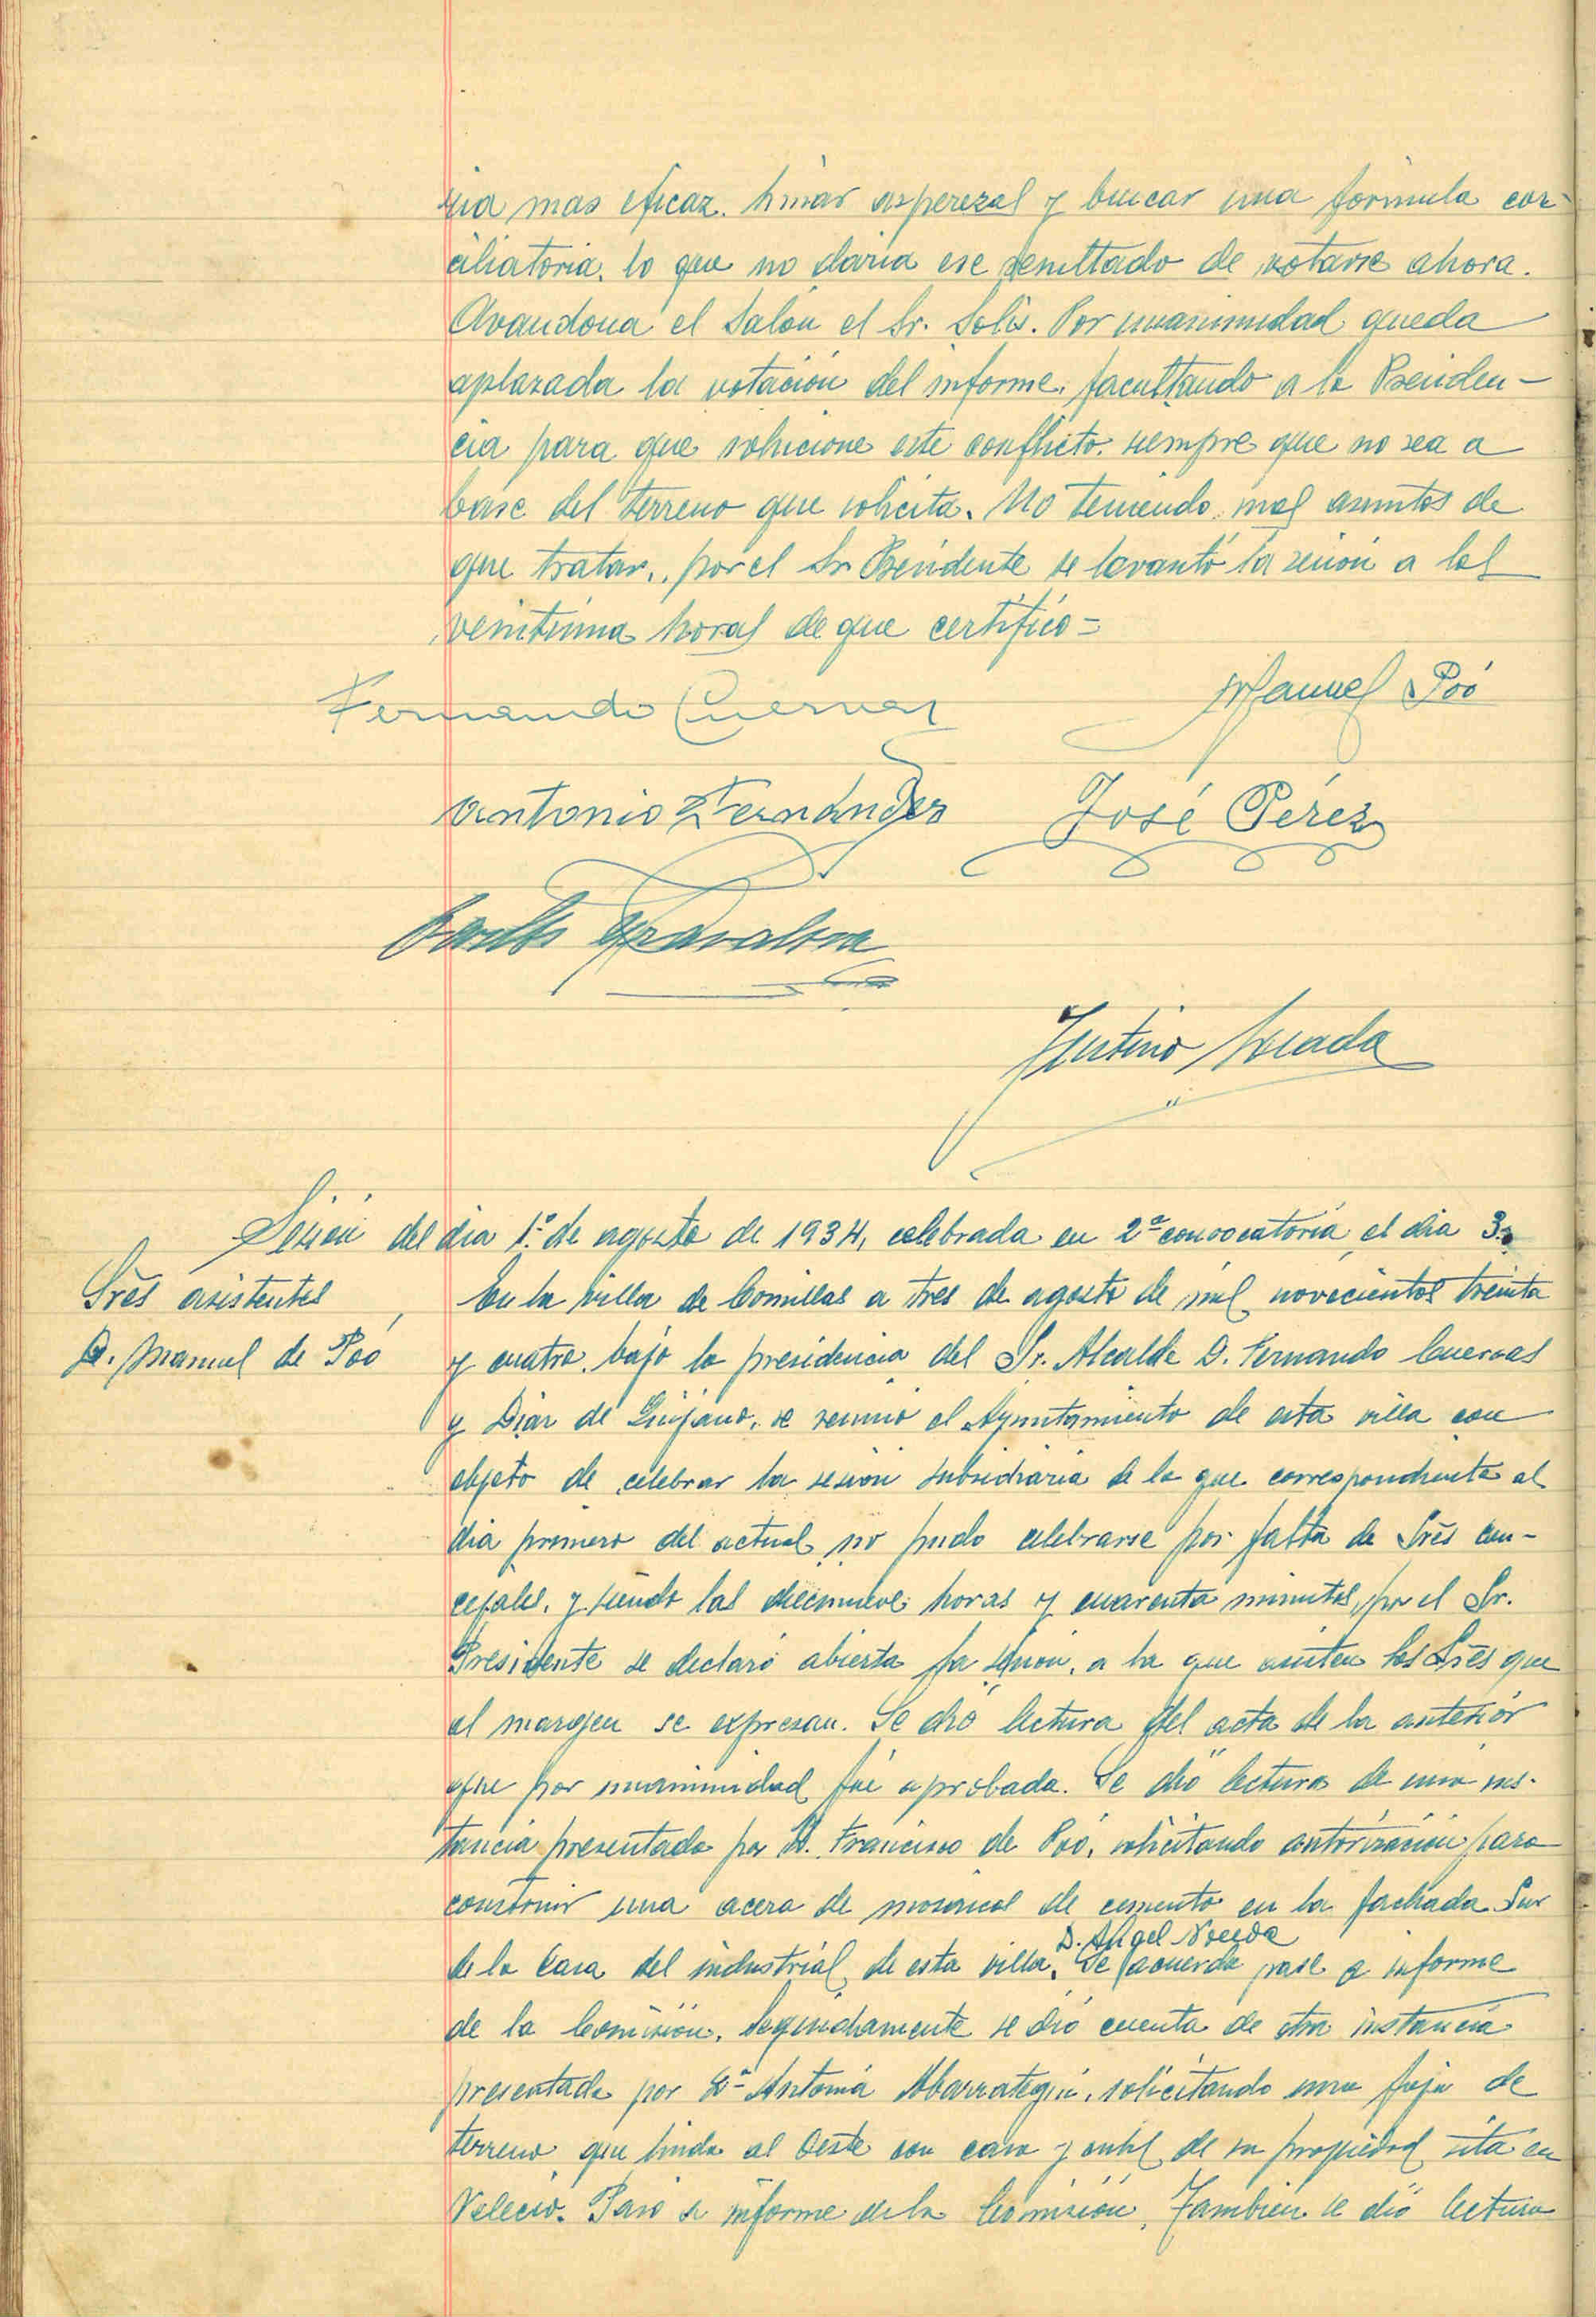 ria mas eficaz. limar asperezas y buscar una fórmula con-
ciliatoria. lo que no daria ese resultado de votarse ahora.
Avandona el Salón el Sr. Solis. Por unanimidad queda
aplazada la votación del informe. facultando a la Presiden-
cia para que solucione este conflicto. siempre que no sea a
base del terreno que solicita. No teniendo mas asuntos de
que tratar., por el Sr. Presidente se levantó la sesión a las
veintiuna horas de que certifico=
Fernando Cuevas
Manuel Poó
Antonio Fernández
José Pérez
Justino
Sesión del dia 1º de agosto de 1934, celebrada en 2ª convocatoria el dia 3.
Srēs asistentes
D. Manuel de Poó
En la villa de Comillas a tres de agosto de mil novecientos treinta
y cuatro. bajo la presidencia del Sr. Alcalde D. Fernando Cuevas
y Diaz de Quijano. se reunió el Ayuntamiento de esta villa con
objeto de celebrar la sesión subsidiaria de la que correspondiente al
dia primero del actual no pudo celebrarse por falta de Srēs con-
cejales. y siendo las diecinueve horas y cuarenta minutos, por el Sr.
Presidente se declaró abierta la sesión. a la que asisten los Srēs que
al margen se expresan. Se dió lectura del acta de la anterior
que por unanimidad fué aprobada. Se dió lectura de una ins-
tancia presentada por D. Francisco de Poó. solicitando autorización para
construir una acera de mosaicos de cemento en la fachada Sur
D. Angel Noceda
de la Casa del industrial de esta villa. Se acuerda pase a informe
de la Comisión. Seguidamente se dió cuenta de otra instancia
presentada por Dª Antonia Abarrategui. solicitando una faja de
terreno que linda al Oeste con casa y de su propiedad sita en
Velecio. Pasó a informe de la Comisión. Tambien se dió lectura